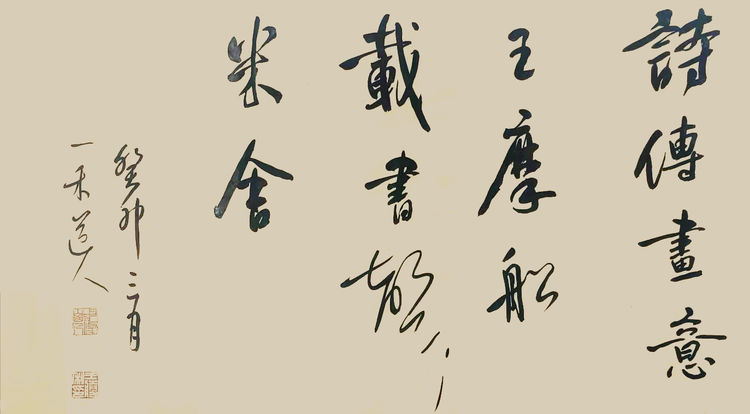 詩傳畫意
王摩船
載書聲
米舍
癸卯三月
一禾道人